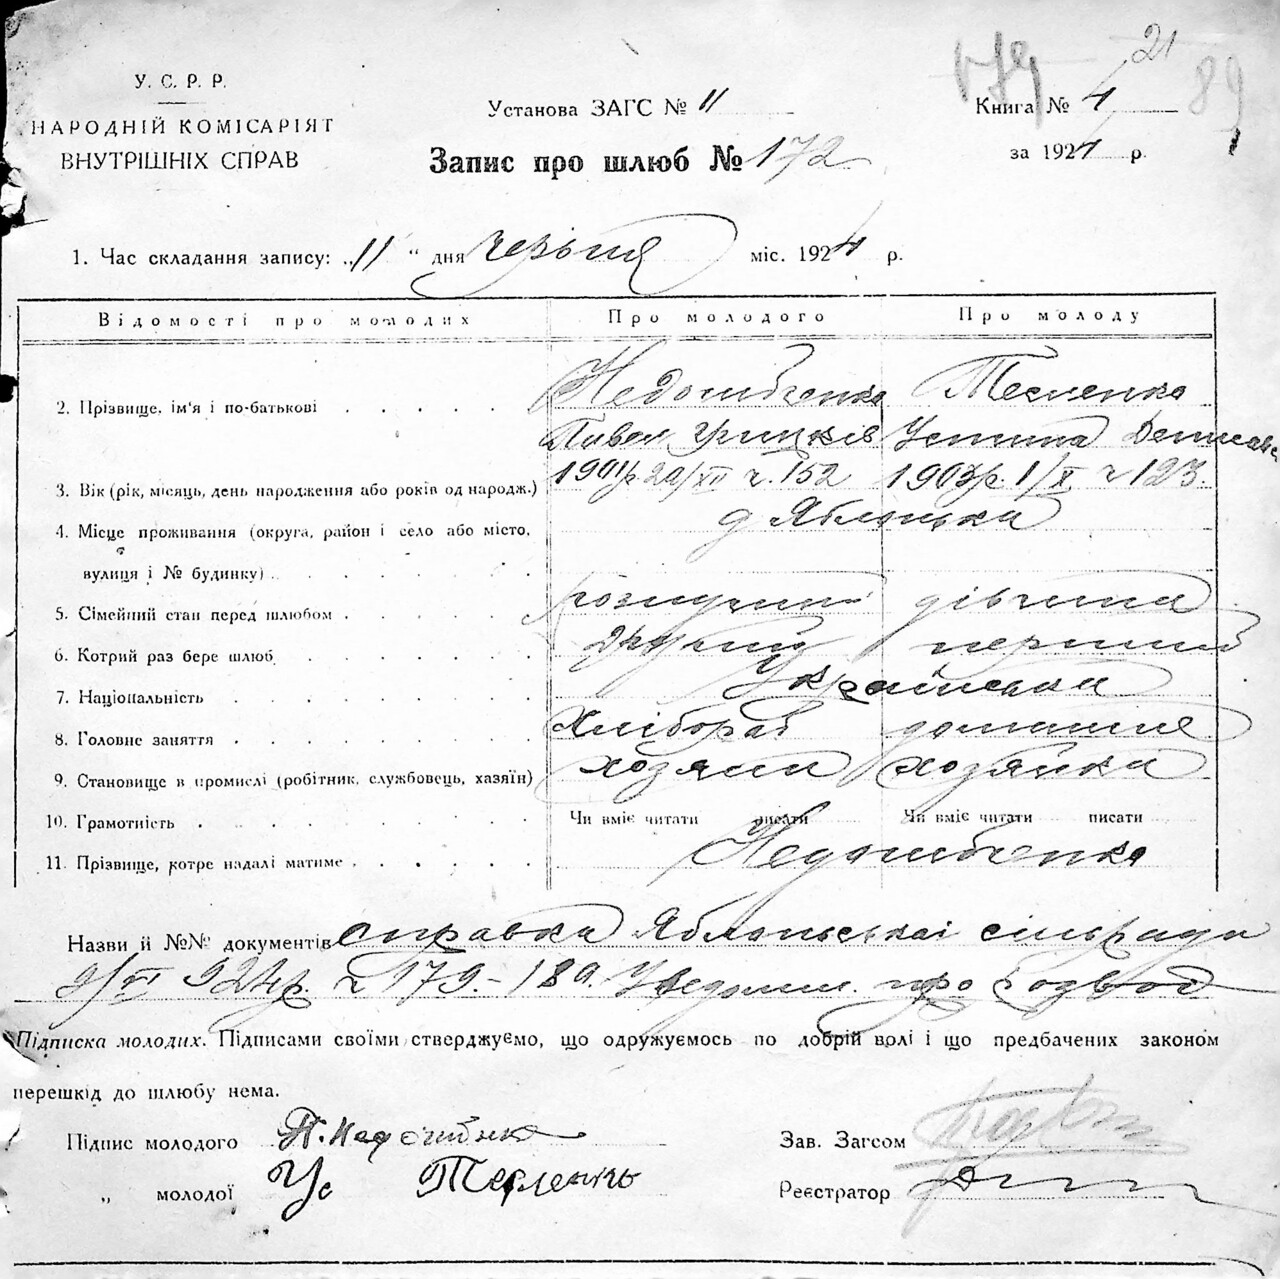 21
89
У. С. Р. Р.
НАРОДНІЙ КОМІСАРІЯТ
ВНУТРІШНІХ СПРАВ
Установа ЗАГС № 11
Книга № 4
Запис про шлюб № 172
за 1924 р.
1. Час складання запису: „11 " дня червня міс. 1924 р.
Відомості про молодих Про молодого Про молоду
2. Прізвище, ім'я і по-батькові Недошибченко Тесленко
Павел Грицків Устина Денисов
3. Вік (рік, місяць, день народження або років од народж.) 1901р 20/XII ч 152 1903р. 1/X ч 123
4. Місце проживання (округа, район і село або місто, д Яблонька
вулиця і № будинку)
5. Сімейний стан перед шлюбом розлучений дівчина
6. Котрий раз бере шлюб другий перший
7. Національність Українська
8. Головне заняття Хлібороб домашнє
9. Становище в промислі (робітник, службовець, хазяїн) хозяин хозяйка
10. Грамотність Чи вміє читати писати Чи вміє читати писати
11. Прізвище, котре надалі матиме Недошибченко
Назви й №№ документів справка сільради
9/VI 924р. ч 179.-180. Уведомл. про розвод
Підписка молодих. Підписами своїми стверджуємо, що одружуємось по добрій волі і що предбачених законом
перешкід до шлюбу нема.
Підпис молодого П. Недошибченко
Зав. Загсом
„ молодої Ус Тесленко
Реєстратор